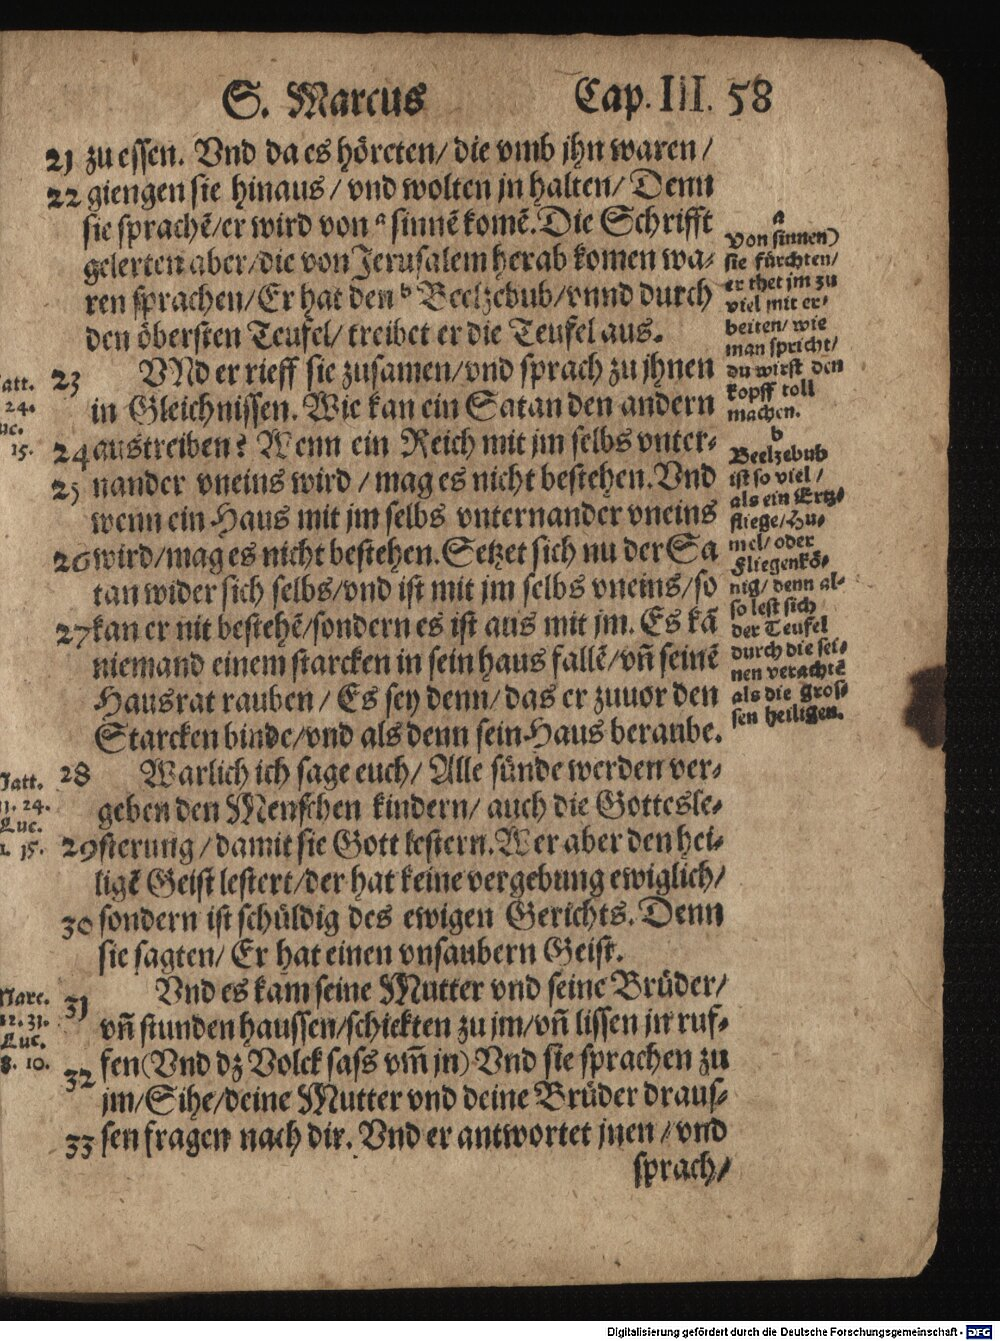 S. Marcus Cap. III. 58
21 zu essen. Vnd da es höreten/ die vmb jhn waren/
22 giengen sie hinaus/ vnd wolten jn halten/ Denn
sie sprachẽ/er wird von ᵃ sinnẽ komẽ. Die Schrifft
gelerten aber/die von Jerusalem herab komen wa⸗
ren sprachen/Er hat den ᵇ Beelzebub/vnnd durch
den öbersten Teufel/ treibet er die Teufel aus.
23 VNd er rieff sie zusamen/vnd sprach zu jhnen
in Gleichnissen. Wie kan ein Satan den andern
24 austreiben? Wenn ein Reich mit jm selbs vnter⸗
25 nander vneins wird/ mag es nicht bestehen. Vnd
wenn ein Haus mit jm selbs vnternander vneins
26 wird/mag es nicht bestehen. Setzet sich nu der Sa
tan wider sich selbs/vnd ist mit jm selbs vneins/so
27 kan er nit bestehẽ/sondern es ist aus mit jm. Es kã
niemand einem starcken in sein haus fallẽ/vñ seinẽ
Hausrat rauben/ Es sey denn/das er zuuor den
Starcken binde/vnd als denn sein Haus beraube.
28 Warlich ich sage euch/ Alle sünde werden ver⸗
geben den Menschen kindern/ auch die Gottesle⸗
29 sterung/damit sie Gott lestern. Wer aber den hei⸗
ligẽ Geist lestert/der hat keine vergebung ewiglich/
30 sondern ist schüldig des ewigen Gerichts. Denn
sie sagten/ Er hat einen vnsaubern Geist.
31 Vnd es kam seine Mutter vnd seine Brüder/
vñ stunden haussen/schickten zu jm/vñ liessen jn ruf⸗
32 fen(Vnd dz Volck sass vm̃ jn) Vnd sie sprachen zu
jm/Sihe/deine Mutter vnd deine Brüder draus⸗
33 sen fragen nach dir. Vnd er antwortet jnen/vnd
sprach/
a
Von sinnen)
sie fürchten/
er thet jm zu
viel mit er⸗
beiten/wie
man spricht/
du wirst den
kopff toll
machen.
b
Beelzebub
ist so viel/
als ein Ertz⸗
fliege/Hu⸗
mel/oder
Fliegenkö⸗
nig/denn al⸗
so lest sich
der Teufel
durch die sei⸗
nen verachtẽ
als die gros⸗
sen heiligen.
att.
24.
uc.
15.
Matt.
24.
Luc.
15.
Marc.
12. 31.
Luc.
8. 10.
Digitalisierung gefördert durch die Deutsche Forschungsgemeinschaft - DFG